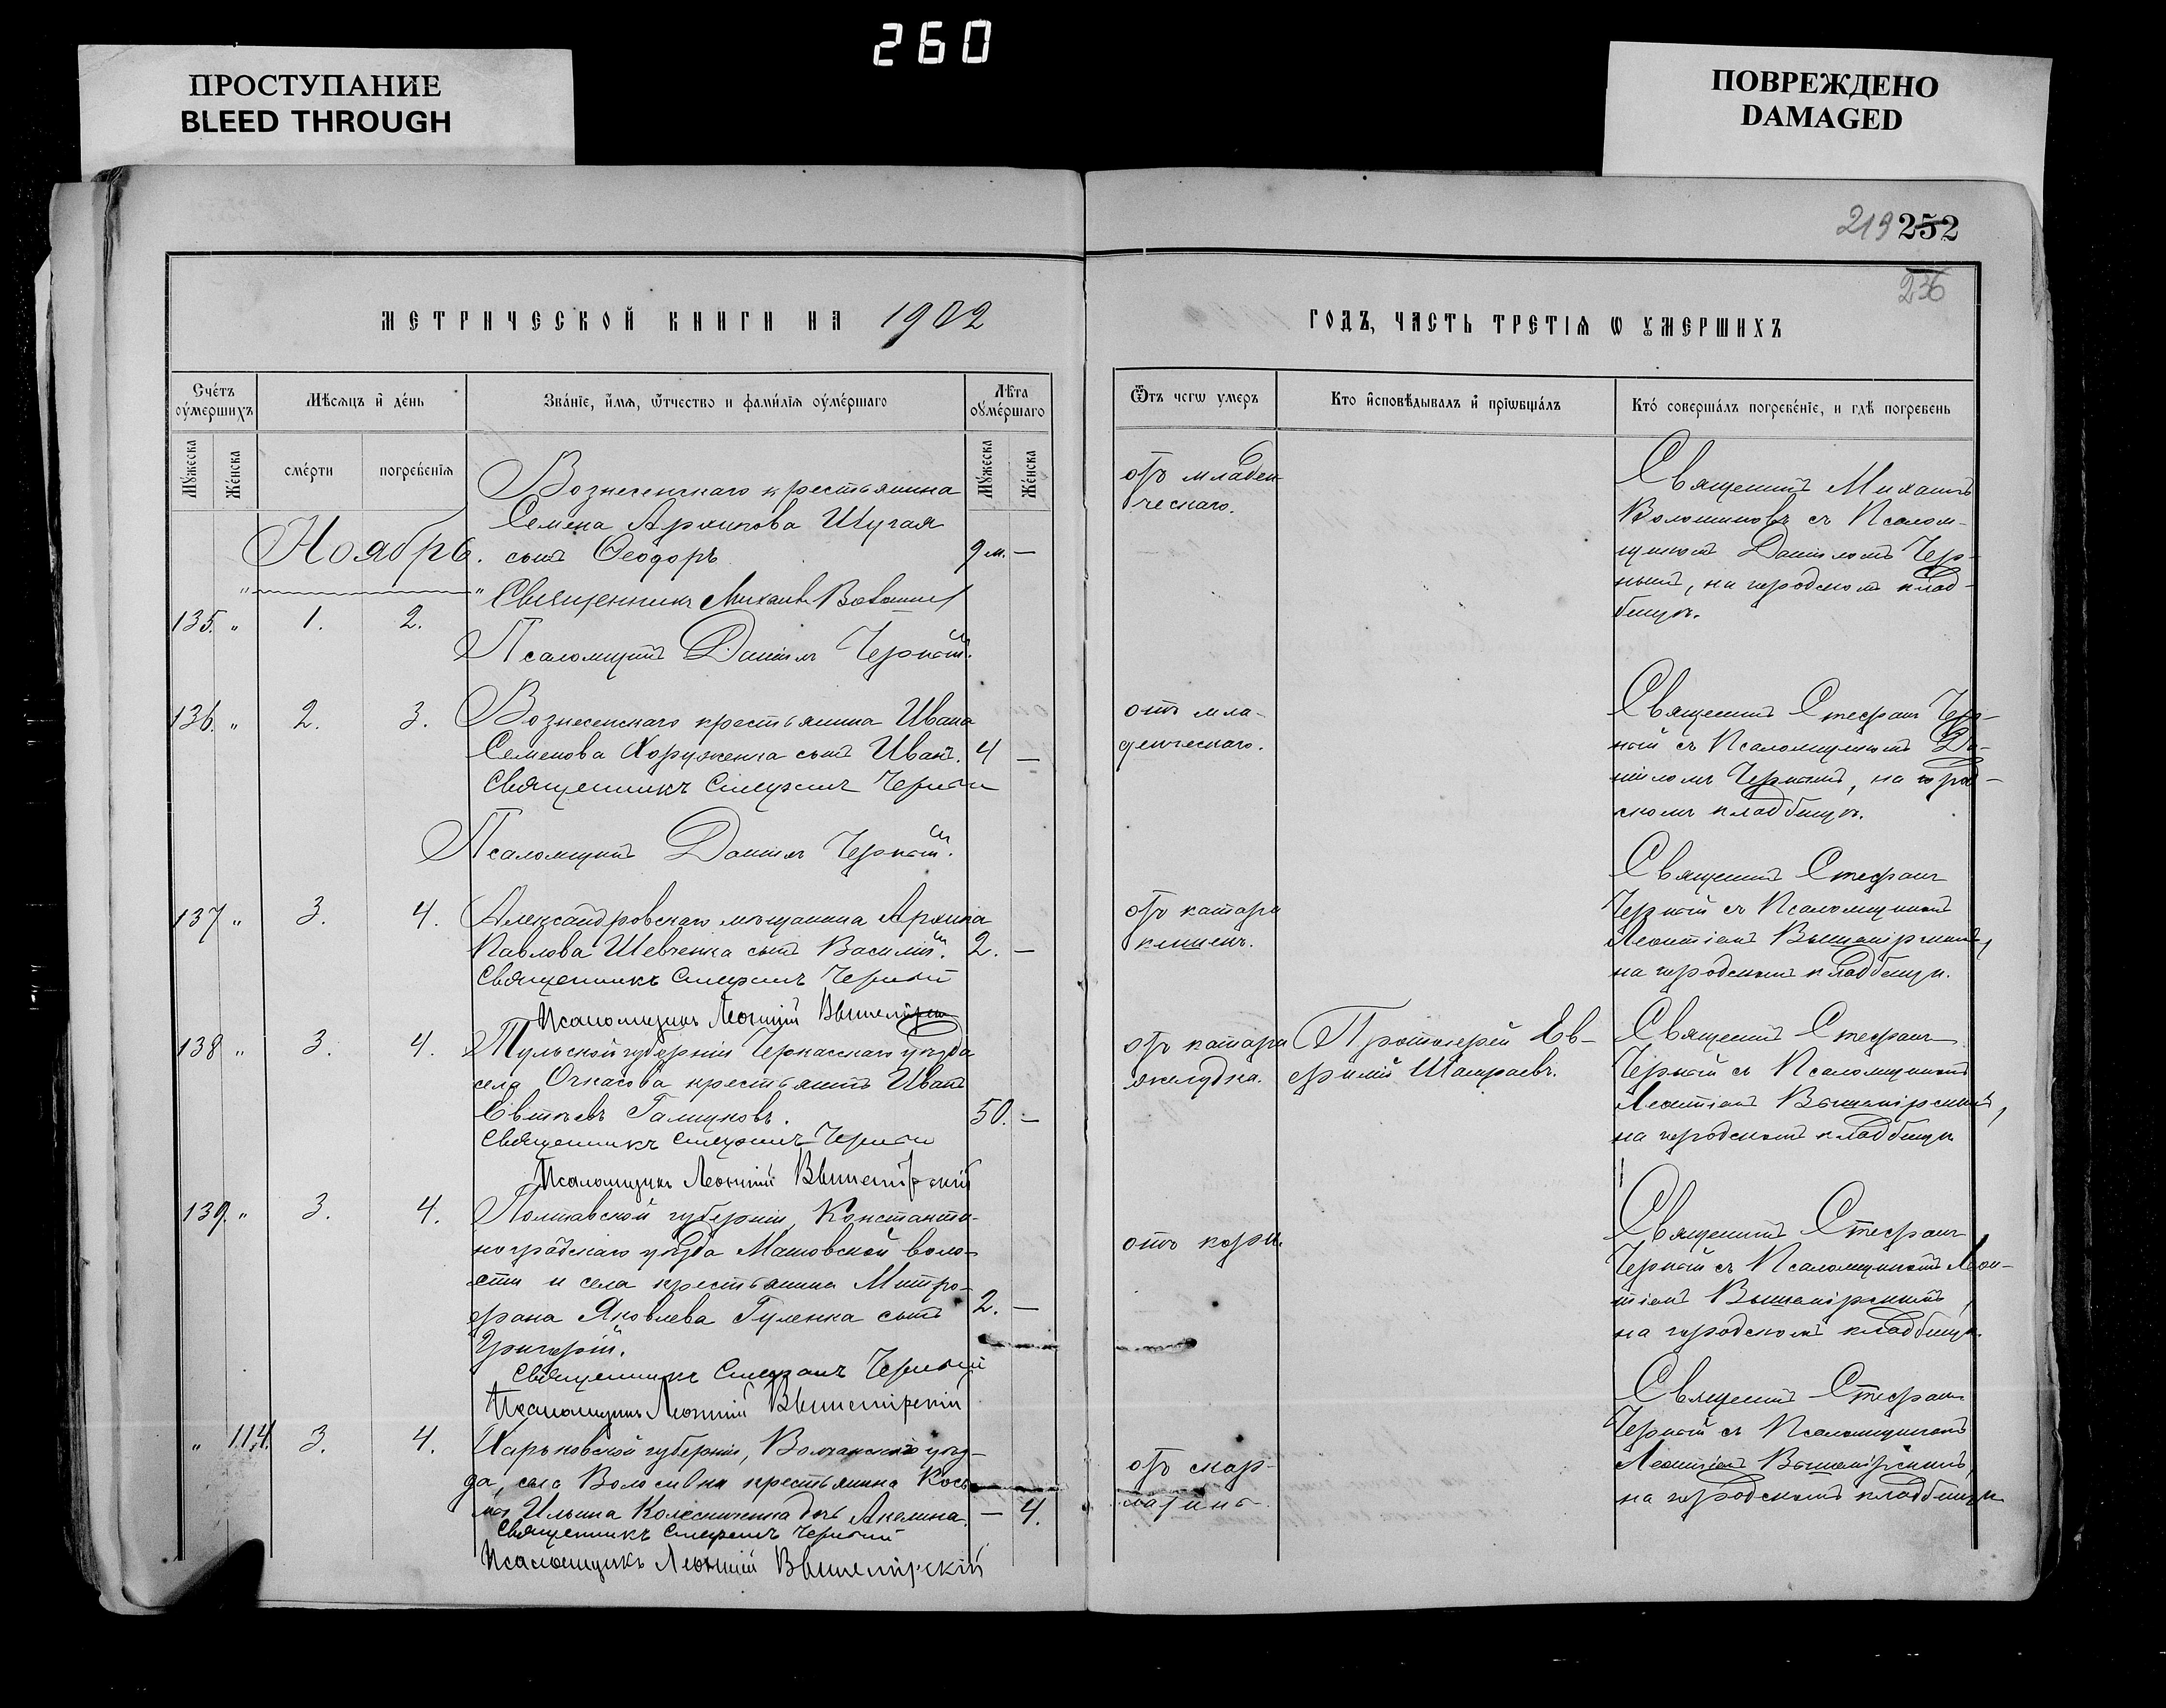 260
ПРОСТУПАНИЕ
BLEED THROUGH
ПОВРЕЖДЕНО
DAMAGED
219 252
236
МЕТРИЧЕСКОЙ КНИГИ НА 1902
ГОДЪ, ЧАСТЬ ТРЕТІѦ Ѡ ОУМЕРШИХЪ
Счетъ оумершихъ
Мѣсѧцъ и день
Званіе, имѧ, ѿчество и фамиліѧ оумершаго
Лѣта оумершаго
Ѿъ чегѡ умеръ
Кто исповѣдывалъ и пріѡбщалъ
Кто совершалъ погребеніе, и гдѣ погребенъ
Мужеска
Женска
смерти
погребеніѧ
Мужеска
Женска
Ноябрь.
135. " 1. 2.
Вознесенскаго крестьянина
Семена Архипова Шугая
сынъ Ѳеодоръ 9 м. —
Священникъ Михаилъ Волошинов
Псаломщикъ Даніилъ Черный.
отъ младен-
ческаго.
Священникъ Михаилъ
Волошиновъ съ Псалом-
щикомъ Даніиломъ Чер-
нымъ, на городскомъ клад-
бищѣ.
136. " 2. 3.
Вознесенскаго крестьянина Ивана
Семенова Хоруженка сынъ Иванъ. 4 —
Священникъ Стефанъ Черный
Псаломщикъ Даніилъ Черный.
отъ мла-
денческаго.
Священникъ Стефанъ Чер-
ный съ Псаломщикомъ Да-
ніиломъ Чернымъ, на город-
скомъ кладбищѣ.
137 " 3. 4.
Александровскаго мѣщанина Архипа
Павлова Шевченка сынъ Василій. 2. —
Священникъ Стефанъ Черный
Псаломщикъ Леонтій Вышемірскій
отъ катара
кишекъ.
Священникъ Стефанъ
Черный съ Псаломщикомъ
Леонтіемъ Вышемірскимъ,
на городскомъ кладбищѣ.
138 " 3. 4.
Тульской губерніи Черкасскаго уѣзда
села крестьянинъ Иванъ
50. —
Священникъ Стефанъ Черный
Псаломщикъ Леонтій Вышемірскій
отъ катара
желудка.
Протоіерей Ев-
фимій
Священникъ Стефанъ
Черный съ Псаломщикомъ
Леонтіемъ Вышемірскимъ,
на городскомъ кладбищѣ
139. " 3. 4.
Полтавской губерніи, Константи-
ноградскаго уѣзда Маховской воло-
сти и села крестьянина Митро-
фана Яковлева Гуленка сынъ 2. —
Григорій.
Священникъ Стефанъ Черный
Псаломщикъ Леонтій Вышемірскій
отъ кори.
Священникъ Стефанъ
Черный съ Псаломщикомъ Леон-
тіемъ Вышемірскимъ,
на городскомъ кладбищѣ.
" 114. 3. 4.
Харьковской губерніи, Волчанскаго уѣз-
да, села крестьянина Кось-
мы Ильина Колесниченка дочь Акелина. — 4.
Священникъ Стефанъ Черный
Псаломщикъ Леонтій Вышемірскій
отъ скар-
латины.
Священникъ Стефанъ
Черный съ Псаломщикомъ
Леонтіемъ Вышемірскимъ,
на городскомъ кладбищѣ